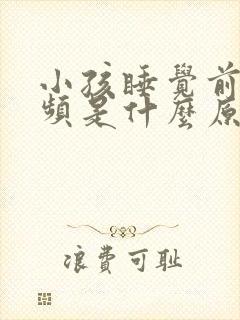 小孩睡覺前
頻是什麼原
浪費可耻